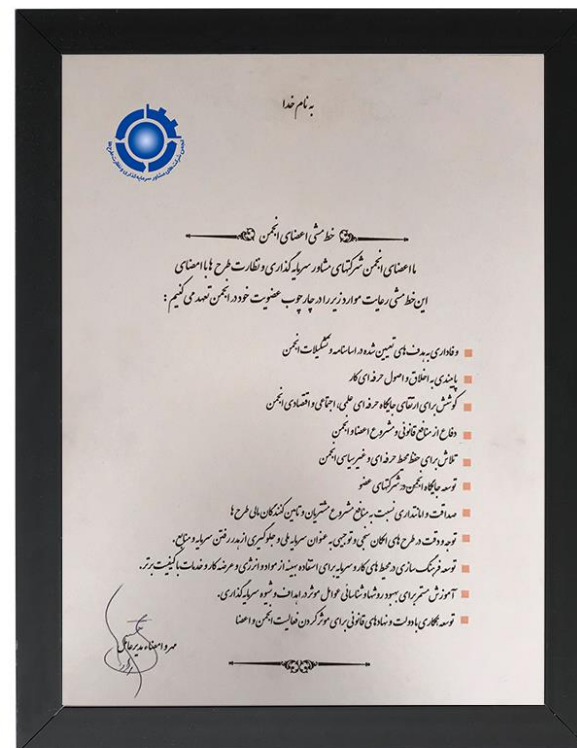 به نام خدا
انجمن شرکت‌های مشاور سرمایه گذاری و نظارت طرح ها
خط مشی اعضای انجمن
ما اعضای انجمن شرکتهای مشاور سرمایه گذاری و نظارت طرح ها با امضای
این خط مشی رعایت موارد زیر را در چارچوب عضویت خود در انجمن تعهد می کنیم :
وفاداری به هدف های تعیین شده در اساسنامه و تشکیلات انجمن
پایبندی به اخلاق و اصول حرفه ای کار
کوشش برای ارتقای جایگاه حرفه ای علمی، اجتماعی و اقتصادی انجمن
دفاع از منافع قانونی و مشروع اعضا و انجمن
تلاش برای حفظ محیط حرفه ای و غیر سیاسی انجمن
توسعه جایگاه انجمن در شرکتهای عضو
صداقت و امانتداری نسبت به منافع مشروع مشتریان و تامین کنندگان مالی طرح ها
توجه و دقت در طرح های امکان سنجی و توجیهی به عنوان سرمایه ملی و جلوگیری از هدر رفتن سرمایه و منابع.
توسعه فرهنگ سازی در محیط های کار و سرمایه برای استفاده بهینه از مواد و انرژی و عرضه کار و خدمات با کیفیت برتر.
آموزش مستمر برای بهبود روشها و شناسائی عوامل موثر در اهداف و شیوه سرمایه گذاری.
توسعه همکاری با دولت و نهادهای قانونی برای موثر کردن فعالیت انجمن و اعضا
مهر و امضاء مدیر عامل